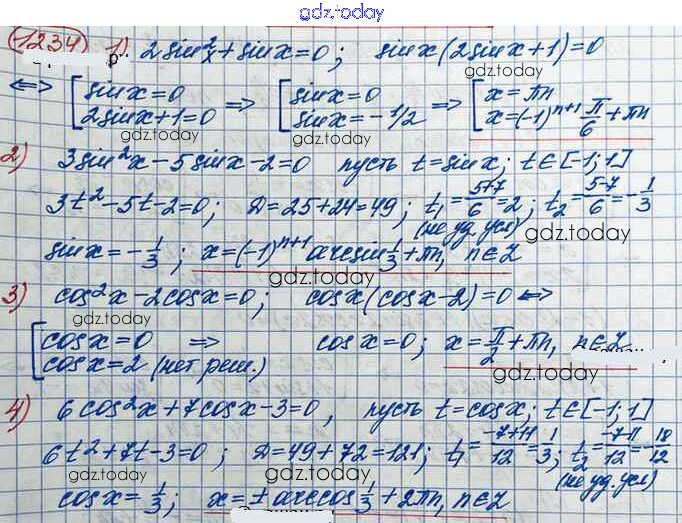 gdz.today
1234) 1) 2sin²x + sinx = 0; sinx(2sinx+1)=0
gdz.today
⟺ [sinx=0 ⟹ [sinx=0 ⟹ [x=πn
2sinx+1=0 sinx=-1/2 x=(-1)ⁿ⁺¹ π/6 + πn
gdz.today gdz.today
2) 3sin²x - 5sinx - 2 = 0 пусть t=sinx; t∈[-1;1]
3t²-5t-2=0; D=25+24=49; t₁=(5+7)/6=2; t₂=(5-7)/6=-1/3
(не уд. усл) gdz.today
sinx=-1/3; x=(-1)ⁿ⁺¹ arcsin 1/3 + πn, n∈Z
gdz.today
3) cos²x-2cosx=0; cosx(cosx-2)=0 ⟺
gdz.today
[cosx=0 ⟹ cosx=0; x=π/2+πn, n∈Z
cosx=2 (нет реш.)
gdz.today
4) 6cos²x+7cosx-3=0, пусть t=cosx; t∈[-1;1]
6t²+7t-3=0; D=49+72=121; t₁=(-7+11)/12=1/3; t₂=(-7-11)/12=-18/12
gdz.today gdz.today (не уд. усл)
cosx=1/3; x=± arccos 1/3 + 2πn, n∈Z